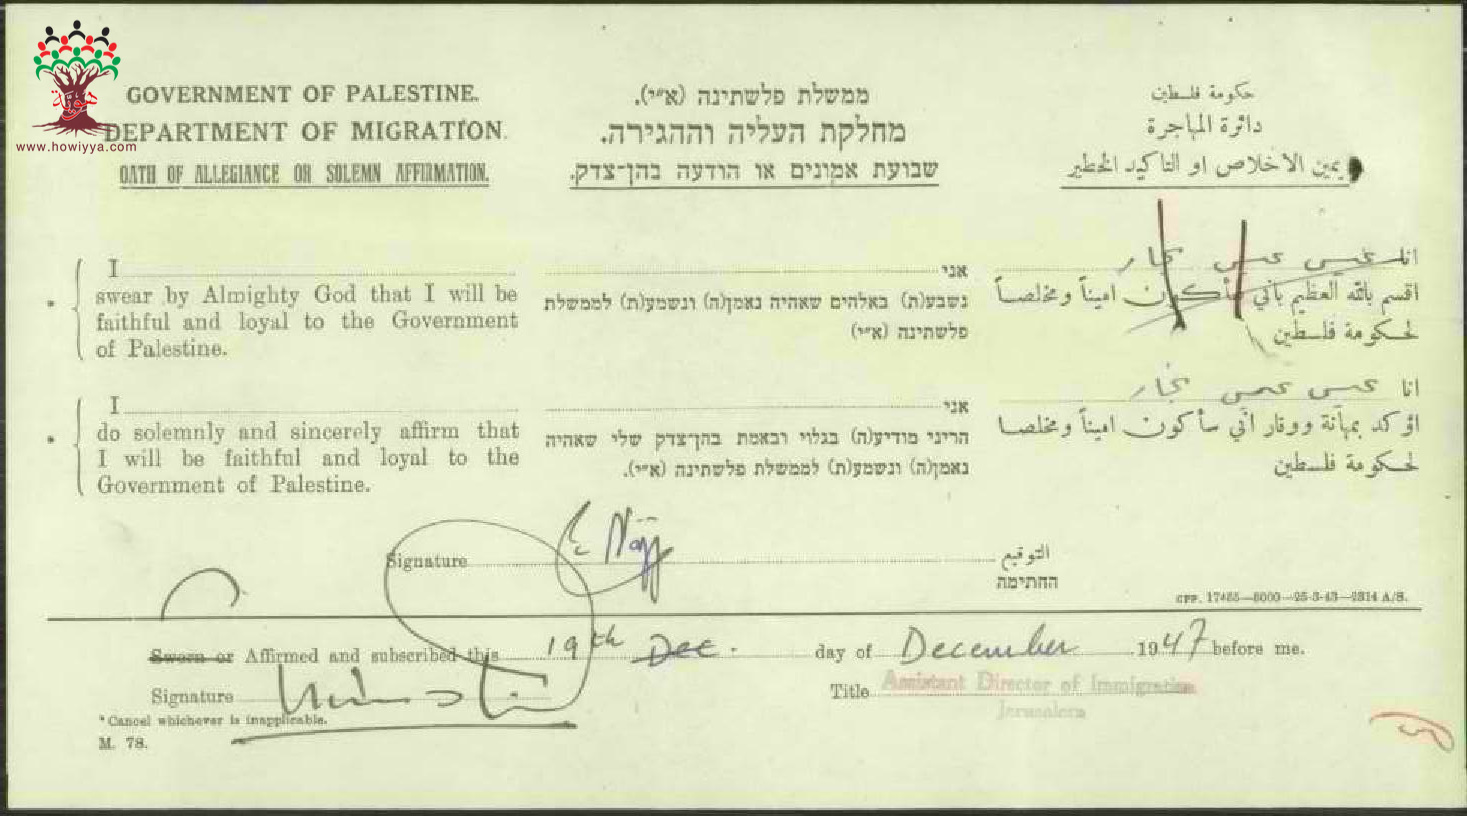 هوية
www.howiyya.com
GOVERNMENT OF PALESTINE.
DEPARTMENT OF MIGRATION.
OATH OF ALLEGIANCE OR SOLEMN AFFIRMATION.
ממשלת פלשתינה (א״י).
מחלקת העליה וההגירה.
שבועת אמונים או הודעה בהן־צדק.
حكومة فلسطين
دائرة المهاجرة
يمين الاخلاص او التاكيد الخطير
* I
swear by Almighty God that I will be
faithful and loyal to the Government
of Palestine.
אני
נשבע(ת) באלהים שאהיה נאמן(ה) ונשמע(ת) לממשלת
פלשתינה (א״י)
انا عيسى عيسى نجار
اقسم بالله العظيم باني سأكون اميناً ومخلصاً
لحكومة فلسطين
* I
do solemnly and sincerely affirm that
I will be faithful and loyal to the
Government of Palestine.
אני
הריני מודיע(ה) בגלוי ובאמת בהן־צדק שלי שאהיה
נאמן(ה) ונשמע(ת) לממשלת פלשתינה (א״י).
انا عيسى عيسى نجار
اؤكد بمهانة ووقار اني سأكون اميناً ومخلصا
لحكومة فلسطين
Signature
التوقيع
החתימה
GPP. 17465—5000—25-3-43—2314 A/S.
Sworn or Affirmed and subscribed this 19th Dec. day of December 1947 before me.
Signature
Title Assistant Director of Immigration
Jerusalem
* Cancel whichever is inapplicable.
M. 78.